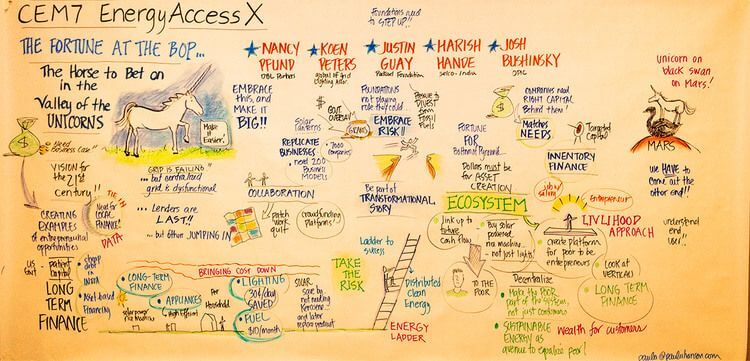 CEM7 ENERGYACCESS X
Foundations need
to STEP UP!!
THE FORTUNE AT THE BOP...
The Horse to Bet on
in the
Valley of the
UNICORNS
Make it
Easier.
NANCY
PFUND
DBL Partners
KOEN
PETERS
Global Off Grid
Lighting Assn
JUSTIN
GUAY
Packard Foundation
HARISH
HANDE
Selco-India
JOSH
BUSHINSKY
OPIC
unicorn on
black swan
on Mars!
MARS
we HAVE to
come out the
other end!!
EMBRACE
this, and
MAKE it
BIG!!
solar
lanterns
GOVT
OVERLAY
REPLICATE
BUSINESSES
7000
companies
need 200
Business
MODELS
FOUNDATIONS
not playing
role they could
EMBRACE
RISK!!
DIVEST
from
Fossil
Fuels
FORTUNE
FOR
Bottom of Pyramid...
COMPANIES NEED
RIGHT CAPITAL
Behind them!
Matches
NEEDS
Targeted
Capital
INVENTORY
FINANCE
Dollars must be
for ASSET
CREATION
Need
Business Case!!
VISION for
the 21st
Century!!
TIE IN
Need for
LOCAL
FINANCE!
DATA
CREATING
EXAMPLES
of entrepreneurial
opportunities
GRID IS FAILING!!
... but centralized
grid is dysfunctional
... Lenders are
LAST!!
...but often JUMPING IN
COLLABORATION
patch
work
quilt
crowdfunding
platforms
Be part of
TRANSFORMATIONAL
STORY
ECOSYSTEM
link up to
future
cash flow
Buy solar
powered
machine...
not just lights!
job/
selling
Entrepreneur
LIVLIHOOD
APPROACH
create platform
for poor to be
entrepreneurs
understand
end
user!!
Look at
VERTICALS
LONG TERM
FINANCE
US
GOVT
patient
Capital
cheap
debt
in
INDIA
Asset-based
Financing
LONG
TERM
FINANCE
BRINGING COST DOWN
LONG-TERM
FINANCE
APPLIANCES
High Efficient
Per
Household
LIGHTING
30¢/day
SAVED
FUEL
$10/month
SOLAR
save by
not needing
Kerosene...
and later
replace product
TAKE
THE
RISK
Ladder to
success
Distributed
Clean
Energy
ENERGY
LADDER
TO THE
POOR
Decentralize
MAKE the POOR
part of the system,
not just customers
SUSTAINABLE
ENERGY as
avenue to equalize Poor!
Wealth for customers